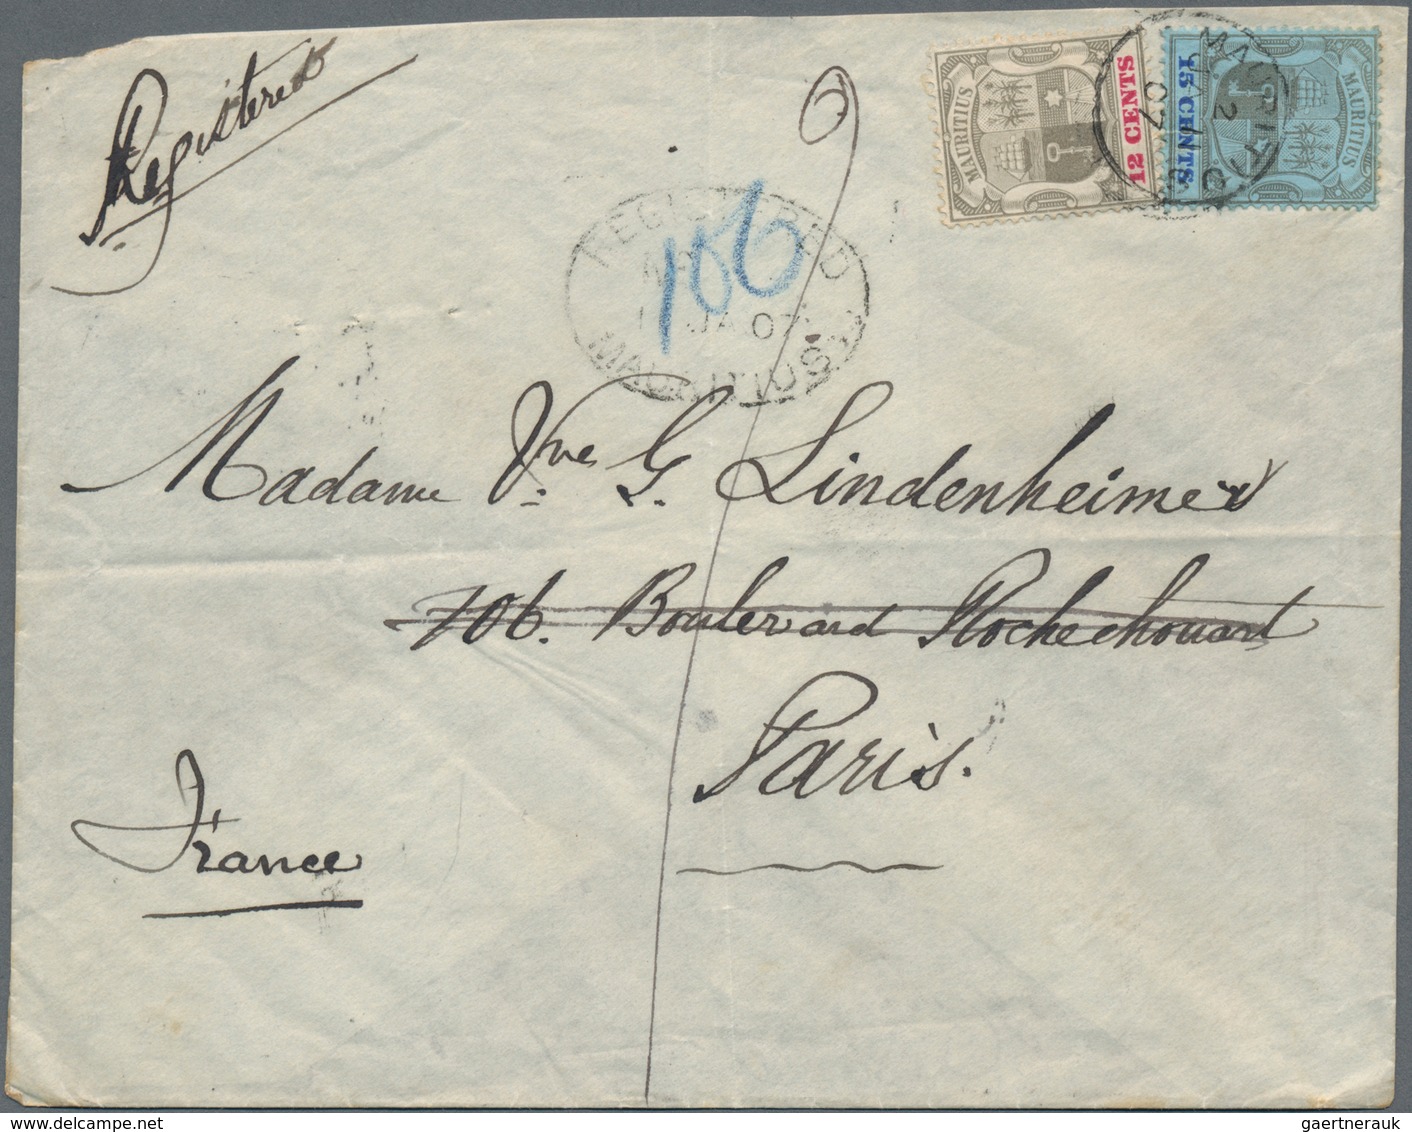 Registered
MAURITIUS
12 CENTS
15 CENTS
MAURITIUS
MAURITIUS
2
JA
07
REGISTERED
106
JA 07
MAURITIUS
Madame Vve G. Lindenheimer
106. Boulevard Rochechouart
Paris.
France
gaertnerauk